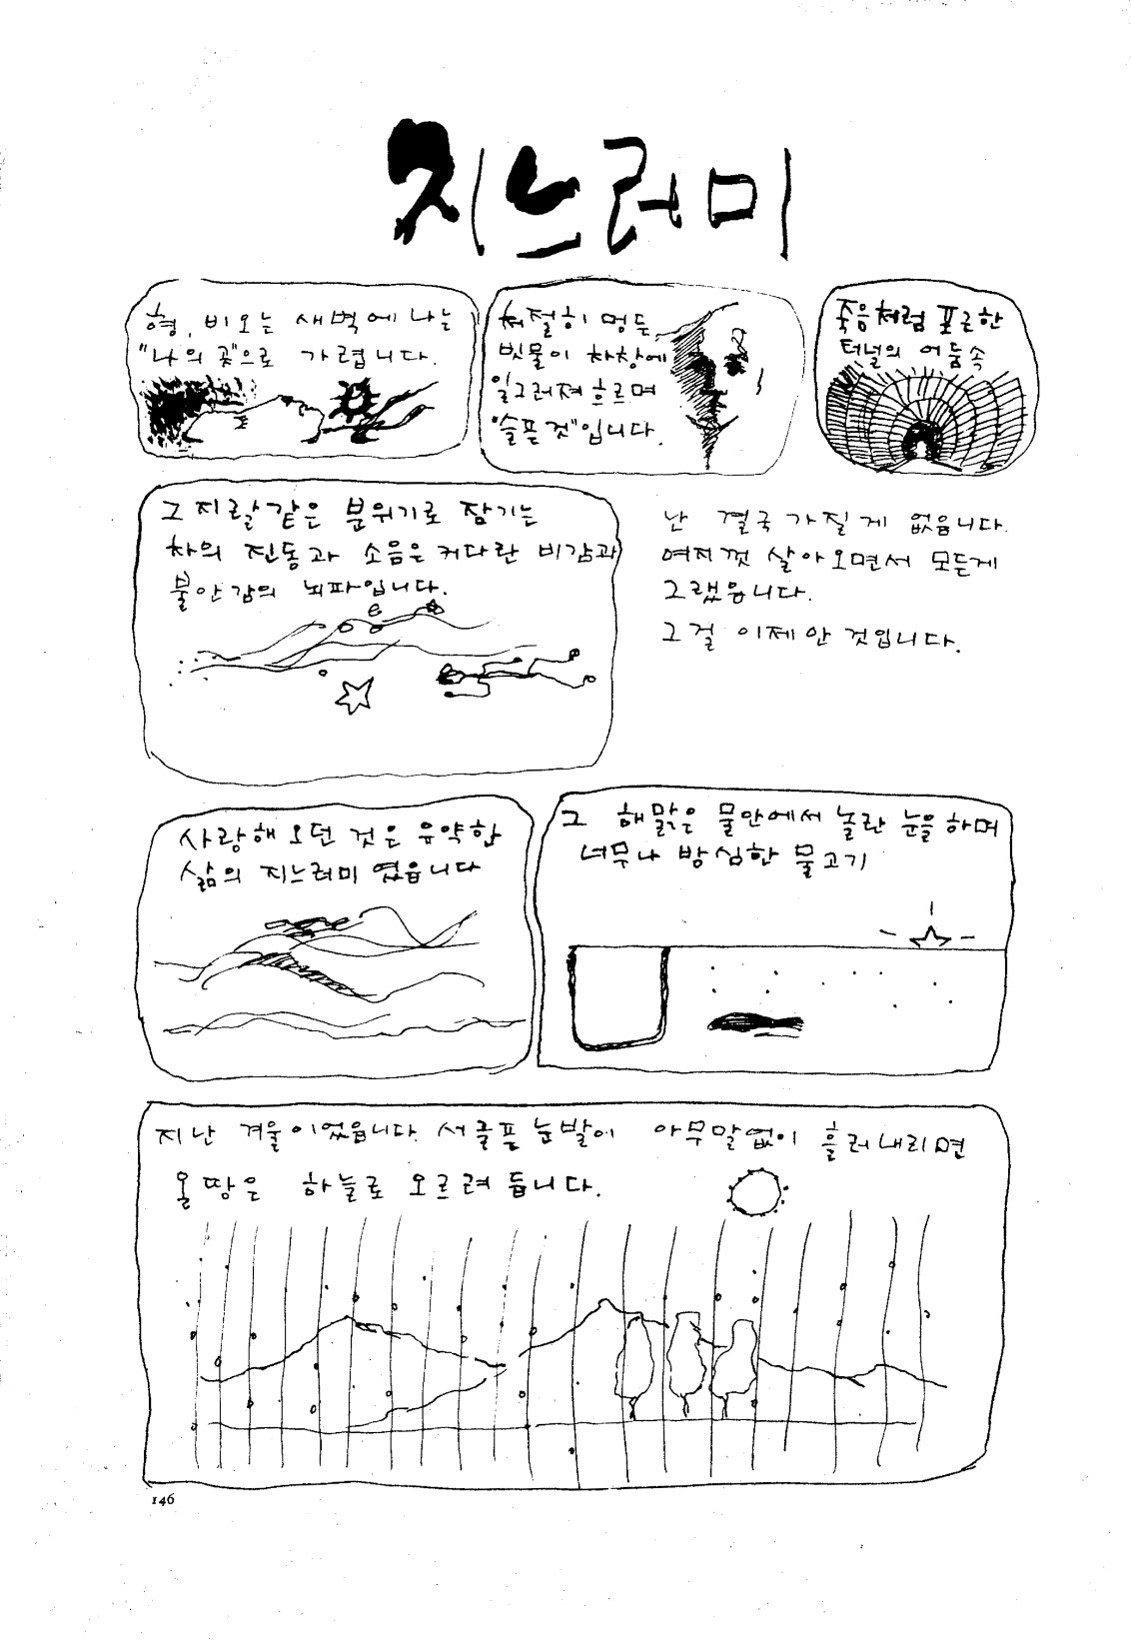 지느러미
형, 비오는 새벽에 나는
"나의 곳"으로 가렵니다.
처절히 멍든,
빗물이 차창에
일그러져 흐르며
"슬픈것"입니다.
죽음처럼 포근한
터널의 어둠속
그 지랄같은 분위기로 잠기는
차의 진동과 소음은 커다란 비감과
불안감의 뇌파입니다.
난 결국 가질게 없읍니다.
여지껏 살아오면서 모든게
그랬읍니다.
그걸 이제 안 것입니다.
사랑해 오던 것은 유약한
삶의 지느러미 였읍니다
그 해맑은 물안에서 놀란 눈을 하며
너무나 방심한 물고기
지난 겨울이었읍니다. 서글픈 눈발이 아무말없이 흘러내리면
온 땅은 하늘로 오르려 듭니다.
146